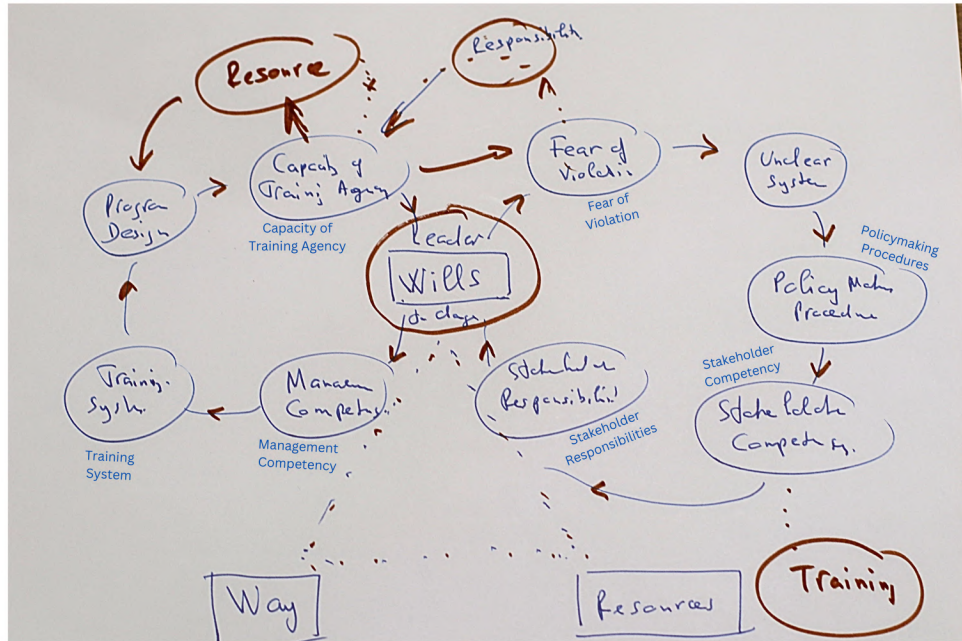 Resource
Responsibilit
Capacity of
Training Agency
Capacity of
Training Agency
Fear of
Violatin
Fear of
Violation
Unclear
System
Program
Design
Leader
Wills
Policymaking
Procedures
Policy Makin
Procedure
Training
System
Training
System
Managem
Competen
Management
Competency
Stakeholder
Responsibilit
Stakeholder
Responsibilities
Stakeholder
Competency
Stakeholder
Competency
Way
Resources
Training